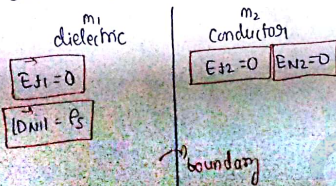 m1
dielectric
Et1 = 0
|DN1| = ρs
m2
Conductor
Et2 = 0
EN2 = 0
boundary